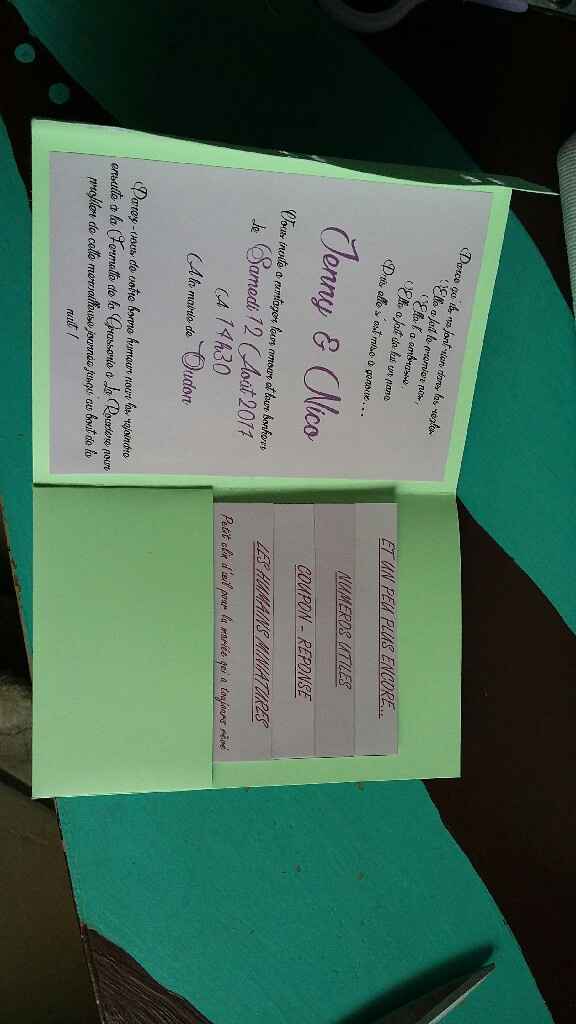 Parce qu'ils ne font rien dans les règles
Elle a fait le premier pas,
Elle l'a embrassé,
Elle a fait de lui un papa
Puis elle s'est mise à genoux...
Jenny & Nico
Vous invite à partager leur amour et leur bonheur
Le Samedi 12 Août 2017
À 14h30
A la mairie de Oudon
Parez-vous de votre bonne humeur pour les rejoindre
ensuite à la Fermette de la Chasserie à La Rouxière pour
profiter de cette merveilleuse journée jusqu'au bout de la
nuit !
ET UN PEU PLUS ENCORE...
NUMEROS UTILES
COUPON - REPONSE
LES HUMAINS MINIATURES
Petit clin d'œil pour la mariée qui a toujours rêvé